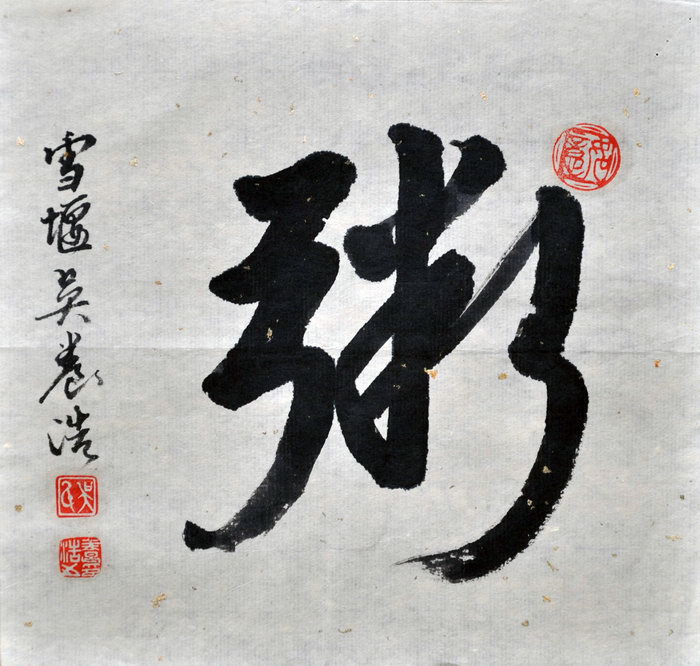 粥
雪堰吴养浩